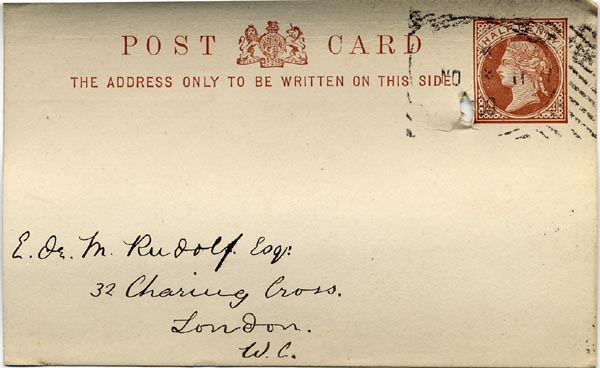 POST CARD
THE ADDRESS ONLY TO BE WRITTEN ON THIS SIDE
HALFPENNY
NO 11
E. de M. Rudolf. Esq:
32 Charing Cross.
London.
W.C.